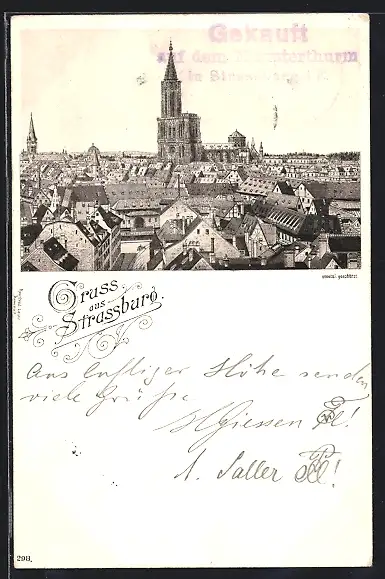 Gekauft
auf dem Münsterthurm
in Strassburg i/E.
gesetzl. geschützt.
Gruss
aus
Strassburg.
Aus luftiger Höhe senden
viele Grüße
HGiessen
A. Saller
298.